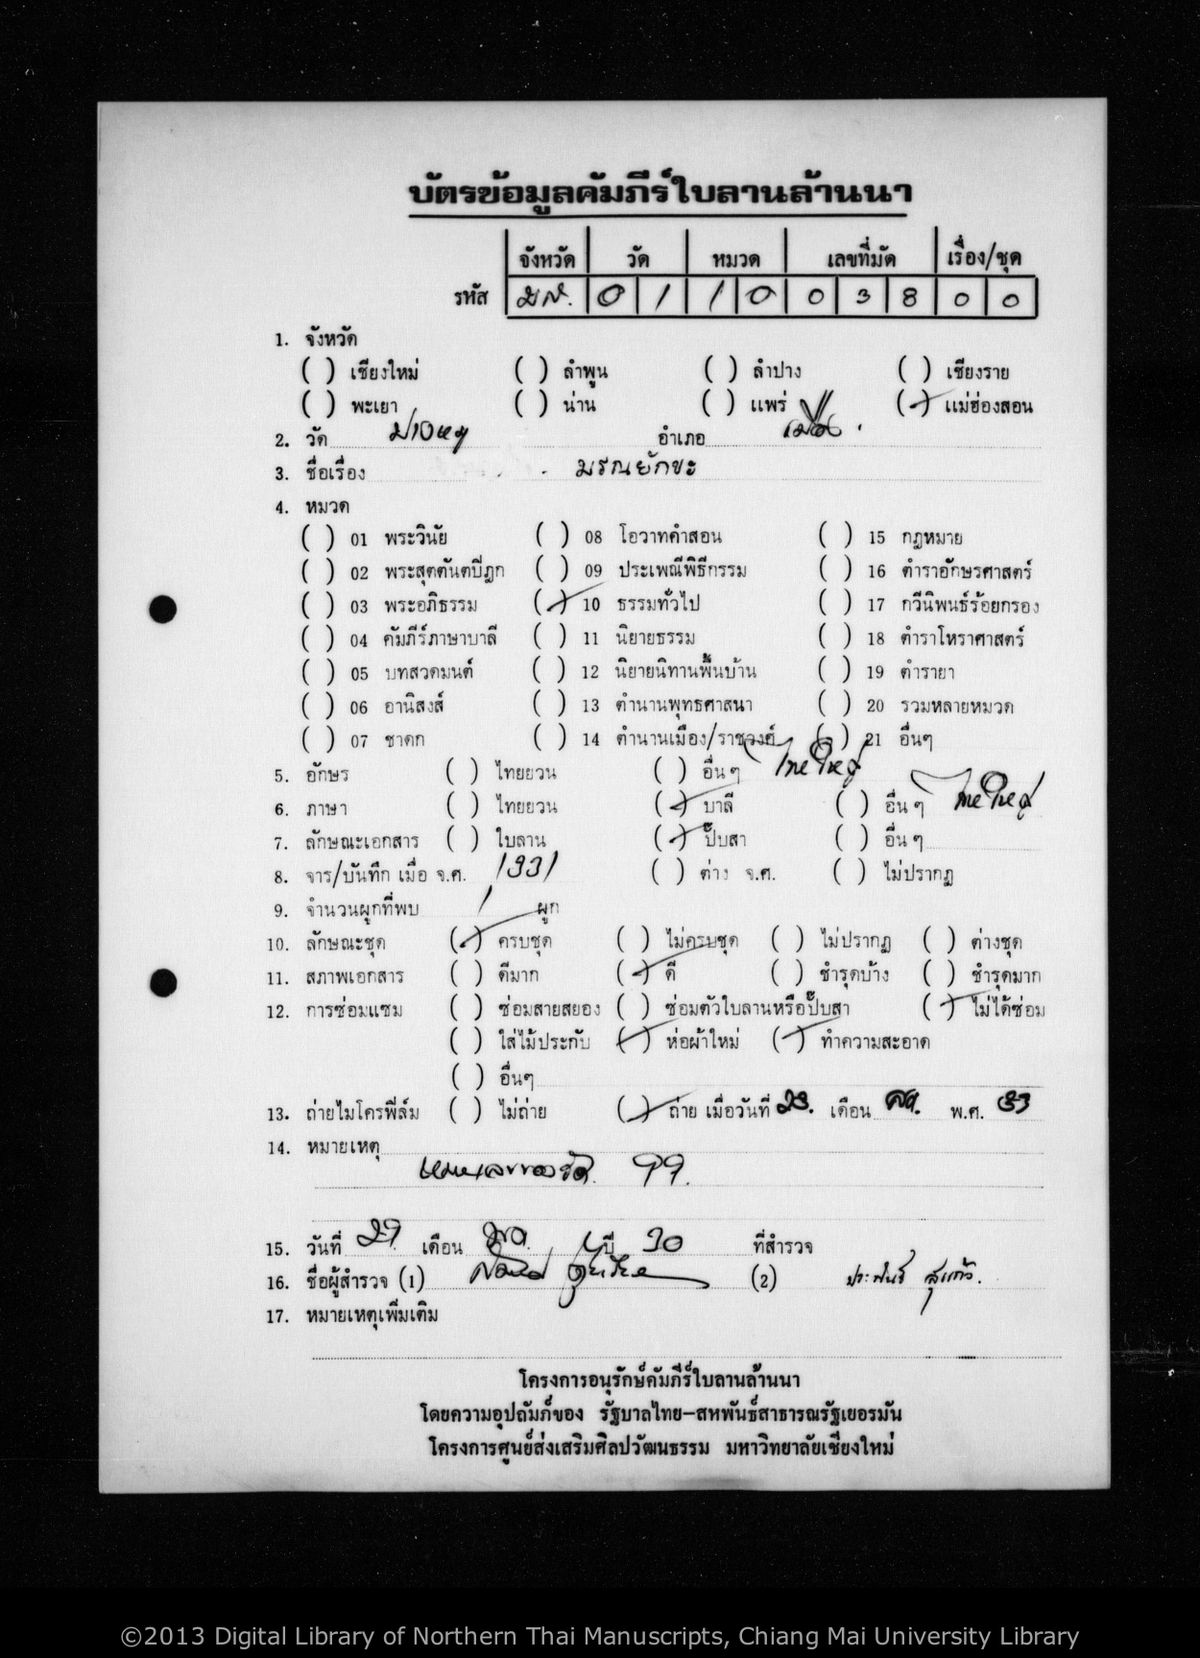 บัตรข้อมูลคัมภีร์ใบลานล้านนา
จังหวัด วัด หมวด เลขที่มัด เรื่อง/ชุด
รหัส มส. 0 1 1 0 0 3 8 0 0
1. จังหวัด
( ) เชียงใหม่ ( ) ลำพูน ( ) ลำปาง ( ) เชียงราย
( ) พะเยา ( ) น่าน ( ) แพร่ (✓) แม่ฮ่องสอน
2. วัด ม่วยต่อ อำเภอ เมือง
3. ชื่อเรื่อง มรณยักขะ
4. หมวด
( ) 01 พระวินัย ( ) 08 โอวาทคำสอน ( ) 15 กฎหมาย
( ) 02 พระสุตตันตปิฎก ( ) 09 ประเพณีพิธีกรรม ( ) 16 ตำราอักษรศาสตร์
( ) 03 พระอภิธรรม (✓) 10 ธรรมทั่วไป ( ) 17 กวีนิพนธ์ร้อยกรอง
( ) 04 คัมภีร์ภาษาบาลี ( ) 11 นิยายธรรม ( ) 18 ตำราโหราศาสตร์
( ) 05 บทสวดมนต์ ( ) 12 นิยายนิทานพื้นบ้าน ( ) 19 ตำรายา
( ) 06 อานิสงส์ ( ) 13 ตำนานพุทธศาสนา ( ) 20 รวมหลายหมวด
( ) 07 ชาดก ( ) 14 ตำนานเมือง/ราชวงศ์ ( ) 21 อื่นๆ
5. อักษร ( ) ไทยยวน ( ) อื่นๆ ไทใหญ่
6. ภาษา ( ) ไทยยวน (✓) บาลี ( ) อื่นๆ ไทใหญ่
7. ลักษณะเอกสาร ( ) ใบลาน (✓) ปั๊บสา ( ) อื่นๆ
8. จาร/บันทึก เมื่อ จ.ศ. 1331 ( ) ต่าง จ.ศ. ( ) ไม่ปรากฏ
9. จำนวนผูกที่พบ 1 ผูก
10. ลักษณะชุด (✓) ครบชุด ( ) ไม่ครบชุด ( ) ไม่ปรากฏ ( ) ต่างชุด
11. สภาพเอกสาร ( ) ดีมาก (✓) ดี ( ) ชำรุดบ้าง ( ) ชำรุดมาก
12. การซ่อมแซม ( ) ซ่อมสายสยอง ( ) ซ่อมตัวใบลานหรือปั๊บสา (✓) ไม่ได้ซ่อม
( ) ใส่ไม้ประกับ (✓) ห่อผ้าใหม่ (✓) ทำความสะอาด
( ) อื่นๆ
13. ถ่ายไมโครฟิล์ม ( ) ไม่ถ่าย (✓) ถ่าย เมื่อวันที่ 23. เดือน พ.ศ. 33
14. หมายเหตุ
หมายเลขของวัด 99.
15. วันที่ 29 เดือน ปี 30 ที่สำรวจ
16. ชื่อผู้สำรวจ (1) (2) ประพันธ์ สุแก้ว.
17. หมายเหตุเพิ่มเติม
โครงการอนุรักษ์คัมภีร์ใบลานล้านนา
โดยความอุปถัมภ์ของ รัฐบาลไทย–สหพันธ์สาธารณรัฐเยอรมัน
โครงการศูนย์ส่งเสริมศิลปวัฒนธรรม มหาวิทยาลัยเชียงใหม่
©2013 Digital Library of Northern Thai Manuscripts, Chiang Mai University Library